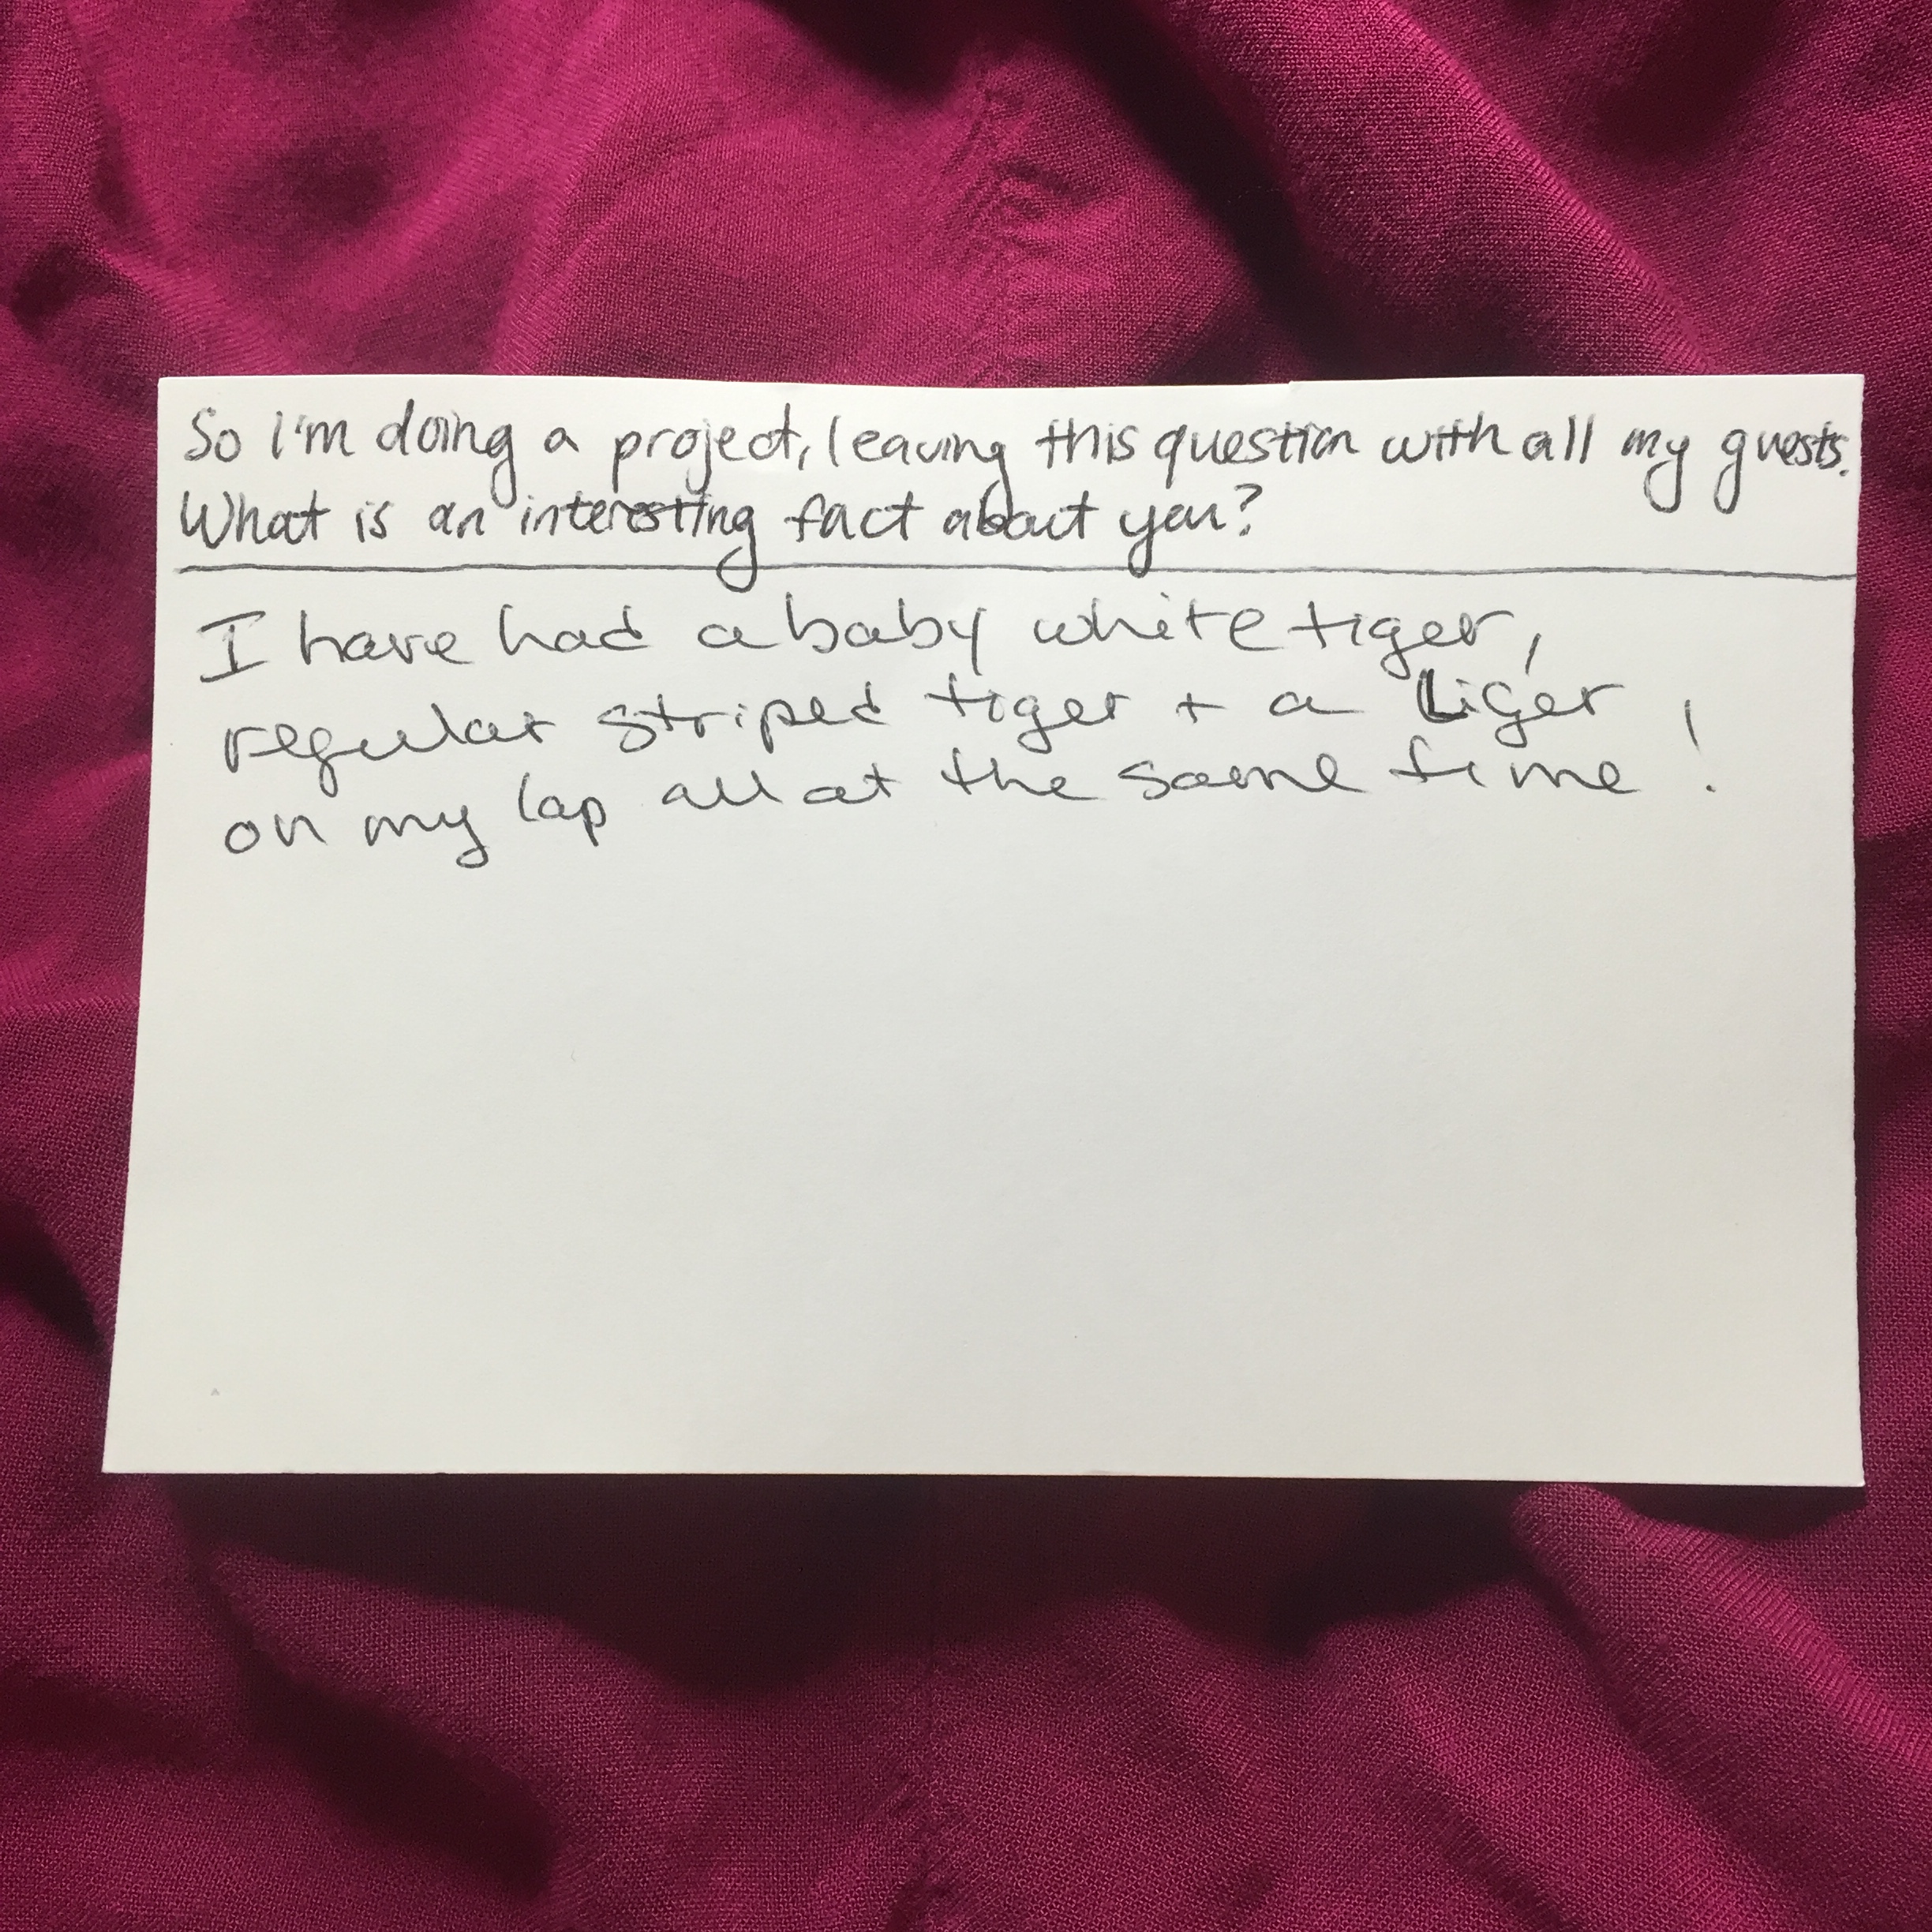 So I'm doing a project, leaving this question with all my guests.
What is an interesting fact about you?
I have had a baby white tiger,
regular striped tiger + a Liger
on my lap all at the same time!